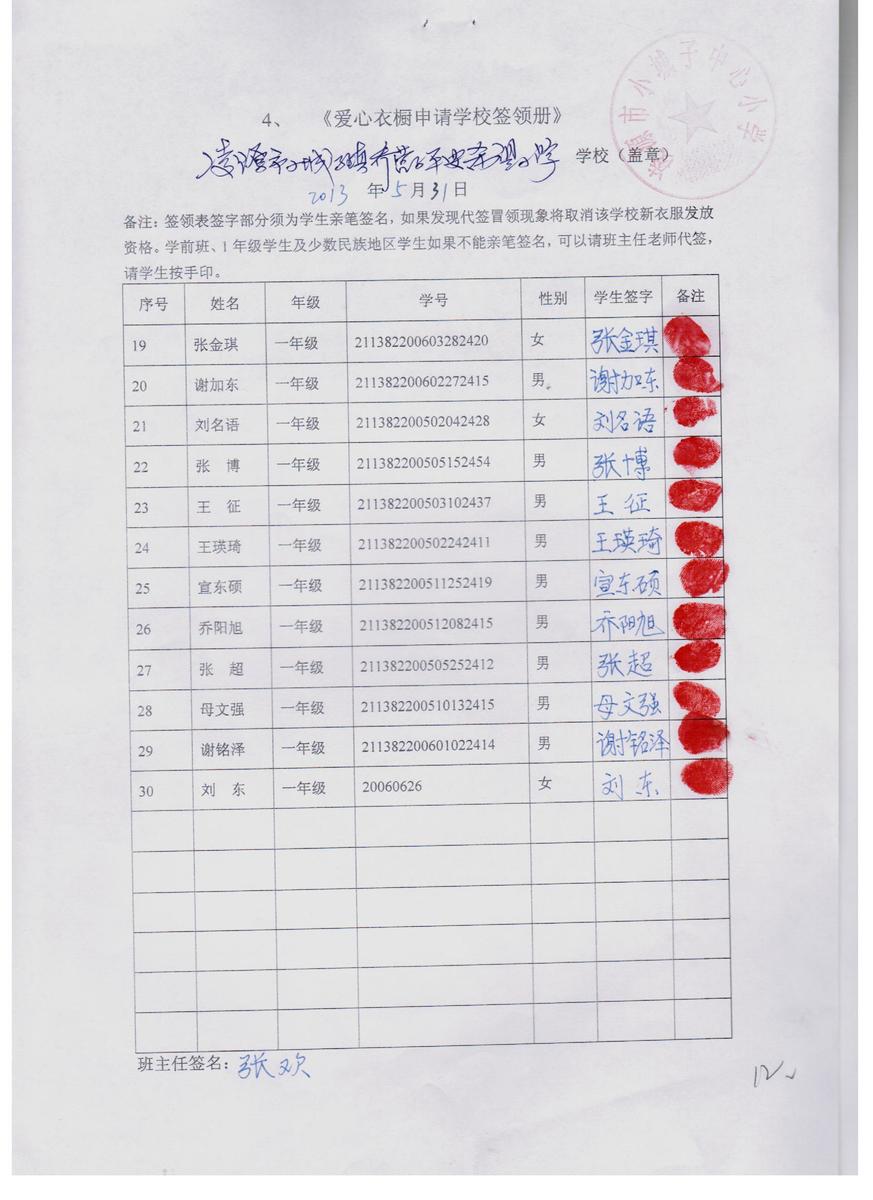 市小城子中心小学
4、 《爱心衣橱申请学校签领册》
凌源市小城子镇 平安希望小学 学校（盖章）
2013 年 5 月 31 日
备注：签领表签字部分须为学生亲笔签名，如果发现代签冒领现象将取消该学校新衣服发放
资格。学前班、1 年级学生及少数民族地区学生如果不能亲笔签名，可以请班主任老师代签，
请学生按手印。
序号 姓名 年级 学号 性别 学生签字 备注
19 张金琪 一年级 211382200603282420 女 张金琪
20 谢加东 一年级 211382200602272415 男。 谢加东
21 刘名语 一年级 211382200502042428 女 刘名语
22 张 博 一年级 211382200505152454 男 张博
23 王 征 一年级 211382200503102437 男 王征
24 王瑛琦 一年级 211382200502242411 男 王瑛琦
25 宣东硕 一年级 211382200511252419 男 宣东硕
26 乔阳旭 一年级 211382200512082415 男 乔阳旭
27 张 超 一年级 211382200505252412 男 张超
28 母文强 一年级 211382200510132415 男 母文强
29 谢铭泽 一年级 211382200601022414 男 谢铭泽
30 刘 东 一年级 20060626 女 刘东
班主任签名：张欢
12